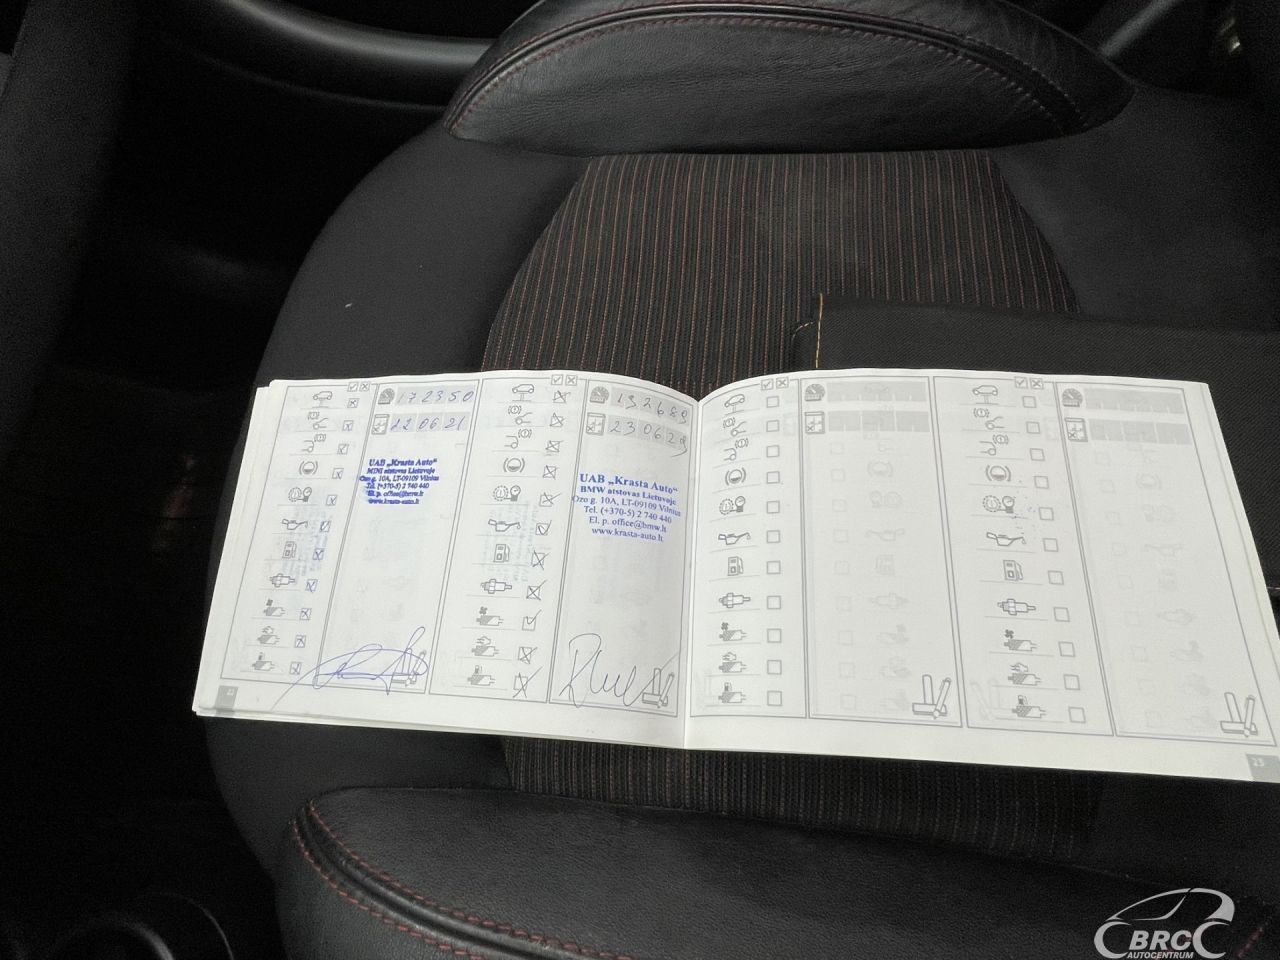 172350
22 06 21
UAB „Krasta Auto“
MINI atstovas Lietuvoje
Ozo g. 10A, LT-09109 Vilnius
Tel. (+370-5) 2 740 440
El. p. office@bmw.lt
www.krasta-auto.lt
132689
23 06 2
UAB „Krasta Auto“
BMW atstovas Lietuvoje
Ozo g. 10A, LT-09109 Vilnius
Tel. (+370-5) 2 740 440
El. p. office@bmw.lt
www.krasta-auto.lt
23
BRC
AUTOCENTRUM